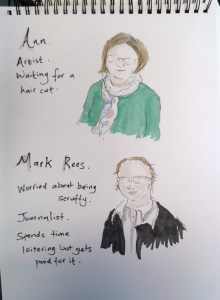 Ann.
Artist.
Waiting for a
hair cut.
Mark Rees.
Worried about being
scruffy.
Journalist.
Spends time
loitering but gets
paid for it.